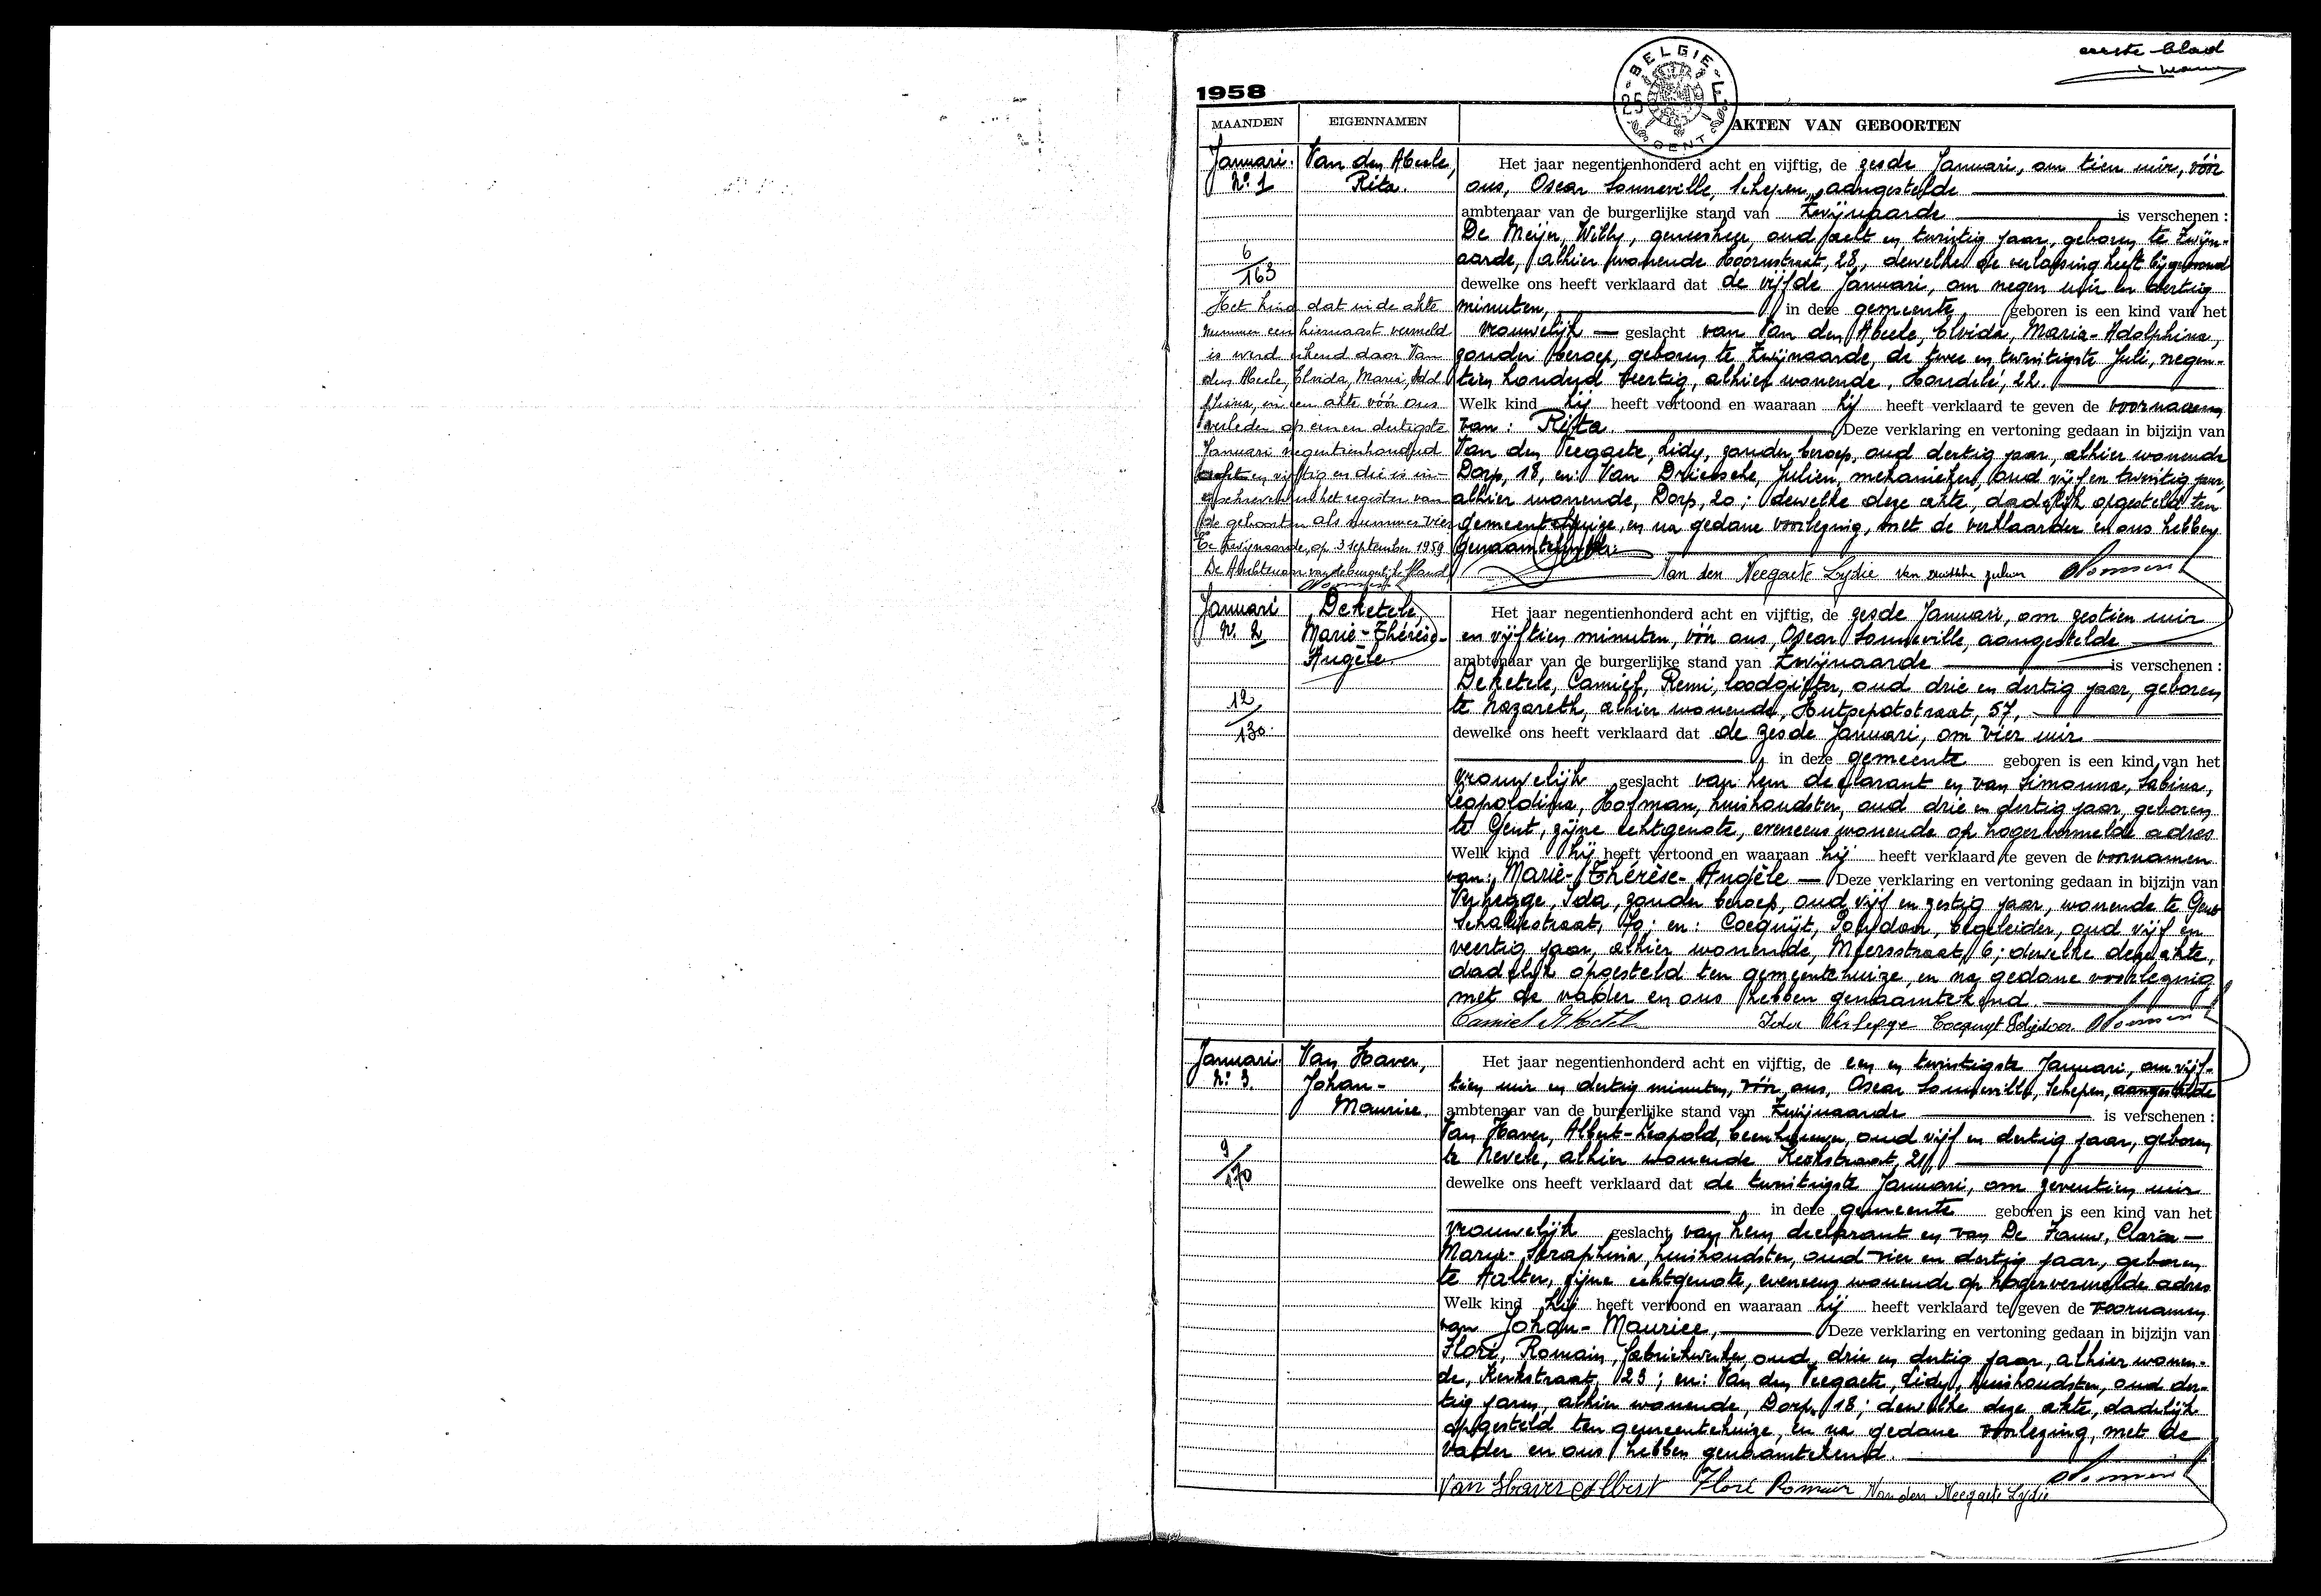 eerste blad
1958
BELGIE-F
25
GENT
MAANDEN EIGENNAMEN AKTEN VAN GEBOORTEN
Januari. Van den Abeele, Het jaar negentienhonderd acht en vijftig, de zesde Januari, om tien uur, vóór
Nr. 1 Rita. ons, Oscar Sonneville, Schepen, aangestelde
ambtenaar van de burgerlijke stand van Zwijnaarde is verschenen :
De Meijer, Willy, geneesheer, oud acht en twintig jaar, geboren te Zwijn-
6/163 aarde, alhier wonende Hoornstraat, 28, dewelke de verlossing heeft bijgewoond
dewelke ons heeft verklaard dat de vijfde Januari, om negen uur en dertig
Het kind dat in de akte minuten, in deze gemeente geboren is een kind van het
nummer een hiernaast vermeld vrouwelijk geslacht van Van den Abeele, Elvida, Maria-Adolphina,
is werd erkend door Van zonder beroep, geboren te Zwijnaarde, de twee en twintigste Juli, negen-
den Abeele, Elvida, Maria, Adol tien honderd veertig, alhier wonende, Hondelé, 22.
phina, in een akte vóór ons Welk kind hij heeft vertoond en waaraan hij heeft verklaard te geven de voornamen
verleden op een en dertigste van : Rita. Deze verklaring en vertoning gedaan in bijzijn van
Januari negentienhonderd Van den Neegaete, Lidy, zonder beroep, oud dertig jaar, alhier wonende
acht en vijftig en die is in- Dorp, 18, en: Van Driessche, Julien, mekanieker, oud vijf en twintig jaar,
geschreven in het register van alhier wonende, Dorp, 20; dewelke deze akte, dadelijk opgesteld ten
de geboorten als nummer vier gemeentehuize, en na gedane voorlezing, met de verklaarder en ons hebben
Te Zwijnaarde, op 3 september 1959 genaamtekend.
De Ambtenaar van de burgerlijke stand Van den Neegaete Lydie Van Driessche Julien
Januari Deketele Het jaar negentienhonderd acht en vijftig, de zesde Januari, om zestien uur
Nr. 2 Marie-Thérèse- en vijftien minuten, vóór ons, Oscar Sonneville, aangestelde
Angèle. ambtenaar van de burgerlijke stand van Zwijnaarde is verschenen :
Deketele, Camiel, Remi, loodgieter, oud drie en dertig jaar, geboren
12/130 te Nazareth, alhier wonende, Hutsepotstraat, 57,
dewelke ons heeft verklaard dat de zesde Januari, om vier uur
in deze gemeente geboren is een kind van het
vrouwelijk geslacht van hem declarant en van Simonna, Sabina,
Leopoldina, Hofman, huishoudster, oud drie en dertig jaar, geboren
te Gent, zijne echtgenote, eveneens wonende op hogervermelde adres
Welk kind hij heeft vertoond en waaraan hij heeft verklaard te geven de voornamen
van: Marie-Thérèse-Angèle — Deze verklaring en vertoning gedaan in bijzijn van
Verhegge, Ida, zonder beroep, oud vijf en zestig jaar, wonende te Gent
Schaliestraat, 70; en: Cocquijt, Polydoor, begeleider, oud vijf en
veertig jaar, alhier wonende, Meersstraat, 6; dewelke deze akte,
dadelijk opgesteld ten gemeentehuize, en na gedane voorlezing
met de vader en ons hebben genaamtekend.
Camiel Deketele Ida Verhegge Cocquyt Polydoor
Januari. Van Haver, Het jaar negentienhonderd acht en vijftig, de een en twintigste Januari, om vijf-
Nr. 3. Johan- tien uur en dertig minuten, vóór ons, Oscar Sonneville, Schepen, aangestelde
Maurice. ambtenaar van de burgerlijke stand van Zwijnaarde is verschenen :
Van Haver, Albert-Leopold, beenhouwer, oud vijf en dertig jaar, geboren
9/170 te Nevele, alhier wonende Kerkstraat, 21,
dewelke ons heeft verklaard dat de twintigste Januari, om zeventien uur
in deze gemeente geboren is een kind van het
vrouwelijk geslacht van hem declarant en van De Fauw, Clara-
Maria-Seraphina, huishoudster, oud vier en dertig jaar, geboren
te Aalter, zijne echtgenote, eveneens wonende op hogervermelde adres
Welk kind hij heeft vertoond en waaraan hij heeft verklaard te geven de voornamen
van Johan-Maurice, Deze verklaring en vertoning gedaan in bijzijn van
Floré, Romain, fabriekwerker, oud drie en dertig jaar, alhier wonen-
de, Kerkstraat, 23; en: Van den Neegaete, Lidy, huishoudster, oud der-
tig jaren, alhier wonende, Dorp, 18; dewelke deze akte, dadelijk
opgesteld ten gemeentehuize, en na gedane voorlezing, met de
vader en ons hebben genaamtekend.
Van Haver Albert Floré Romain Van den Neegaete Lydie